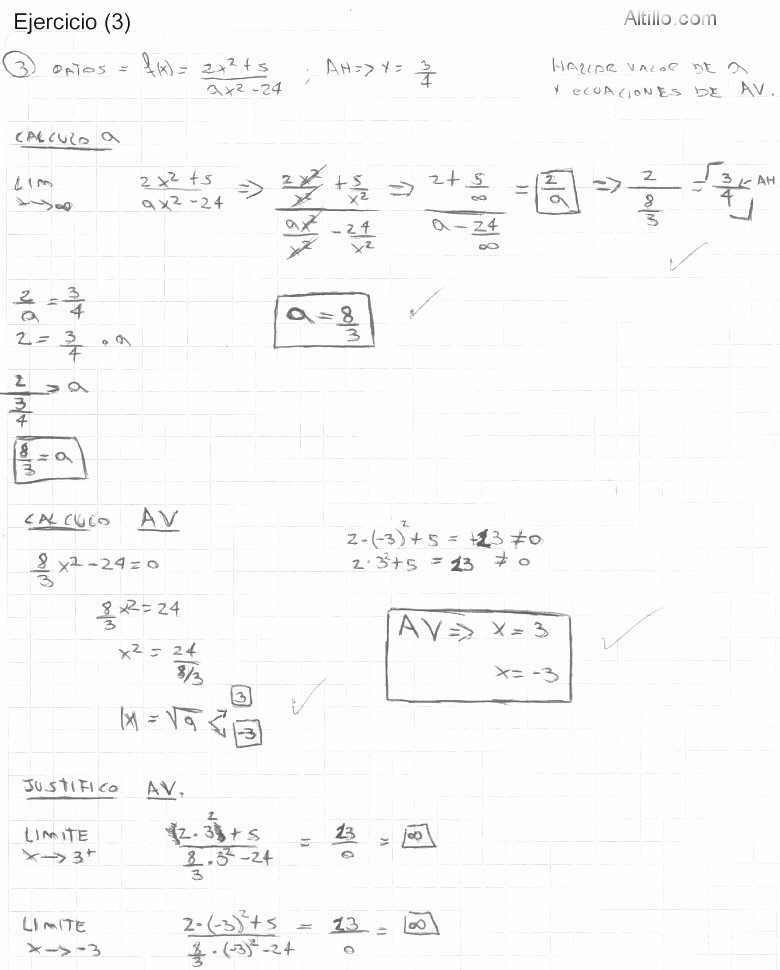 Ejercicio (3)
Altillo.com
③ DATOS = f(x) = (2x² + 5)/(ax² - 24) ; AH => Y = 3/4
HALLAR VALOR DE a
Y ECUACIONES DE AV.
CALCULO a
LIM x→∞ (2x² + 5)/(ax² - 24) => (2x²/x² + 5/x²)/(ax²/x² - 24/x²) => (2 + 5/∞)/(a - 24/∞) = 2/a => 2/(8/3) = 3/4 ← AH
2/a = 3/4
a = 8/3
2 = 3/4 . a
2/(3/4) = a
8/3 = a
CALCULO AV
8/3 x² - 24 = 0
2·(-3)² + 5 = +23 ≠ 0
2·3² + 5 = 23 ≠ 0
8/3 x² = 24
x² = 24/(8/3)
|x| = √9 < 3
-3
AV => x = 3
x = -3
JUSTIFICO AV.
LIMITE x→3⁺ (2·3² + 5)/(8/3·3² - 24) = 23/0 = ∞
LIMITE x→-3 (2·(-3)² + 5)/(8/3·(-3)² - 24) = 23/0 = ∞